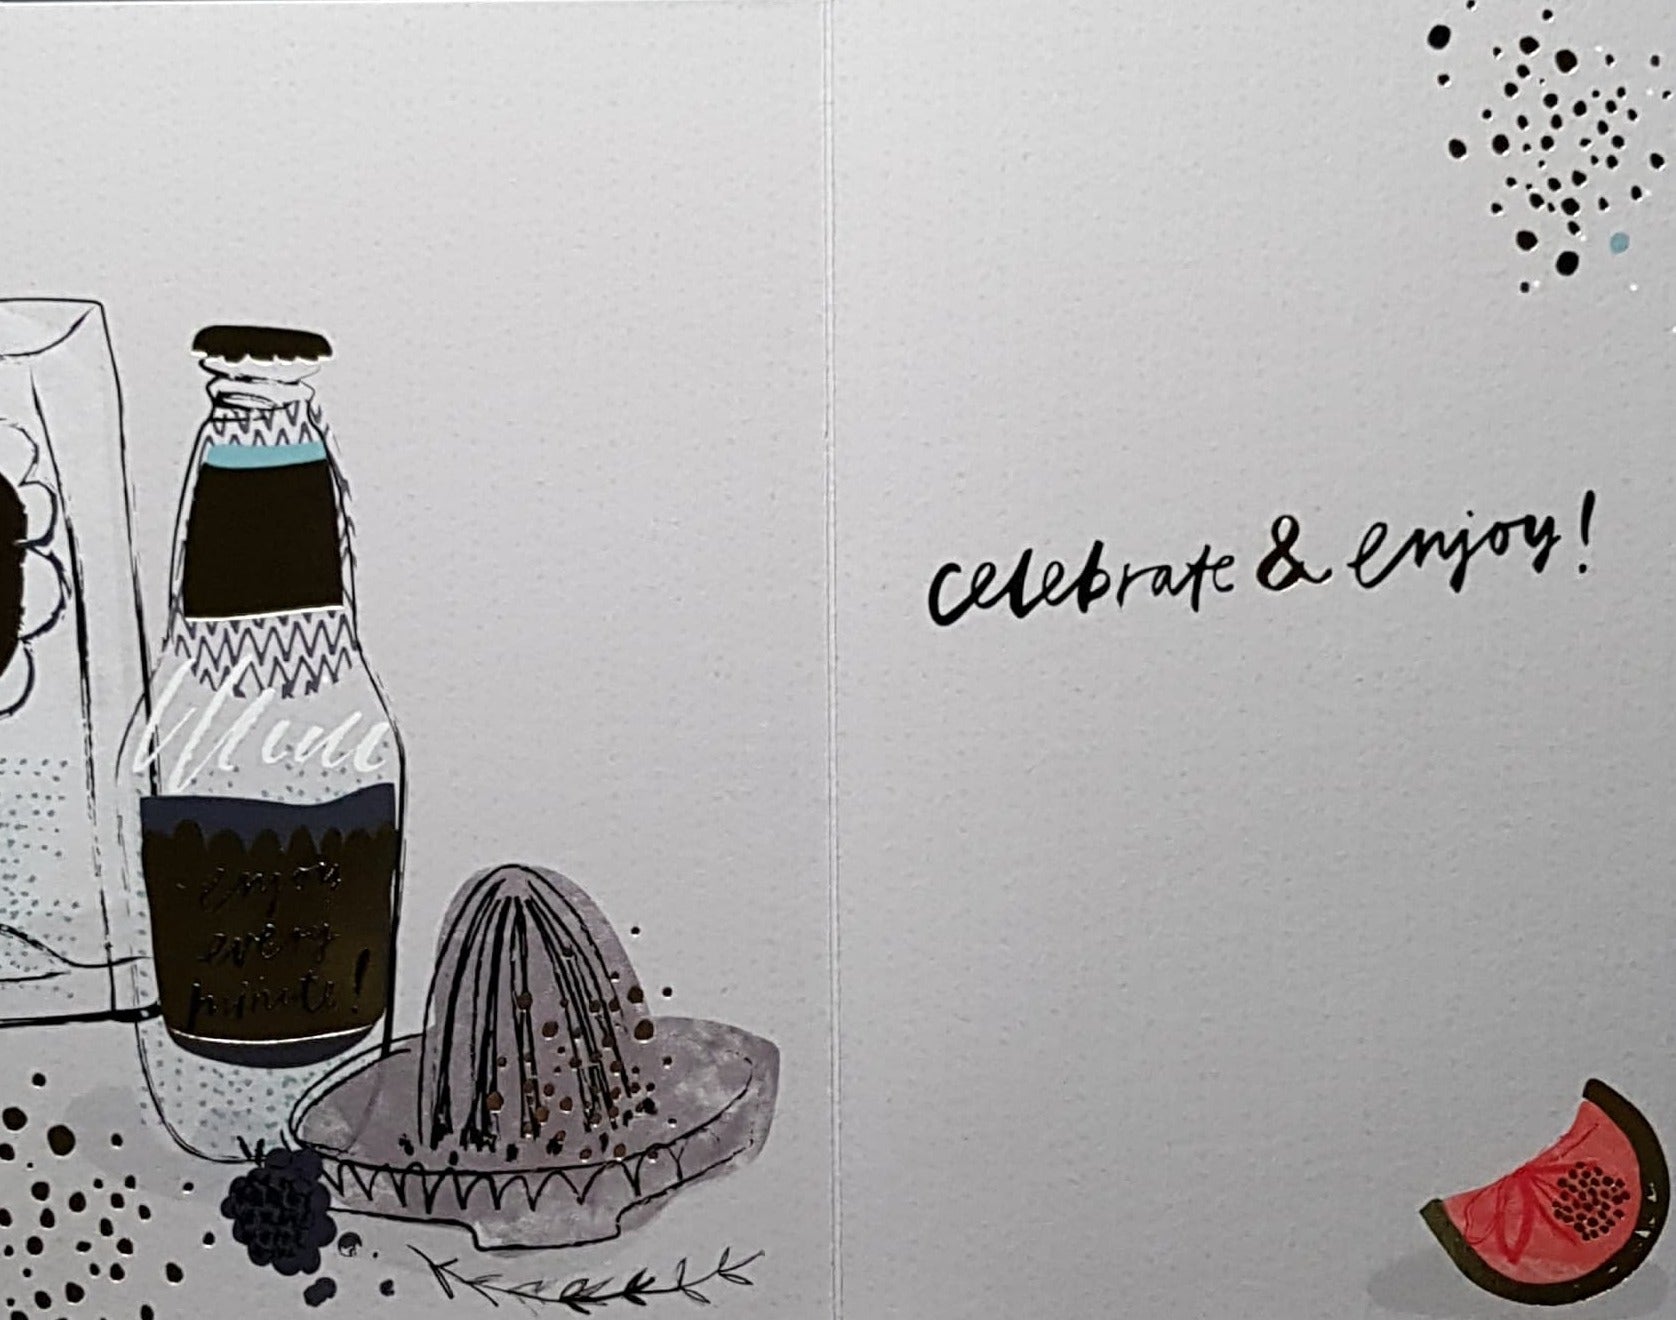 enjoy
every
minute!
celebrate & enjoy!